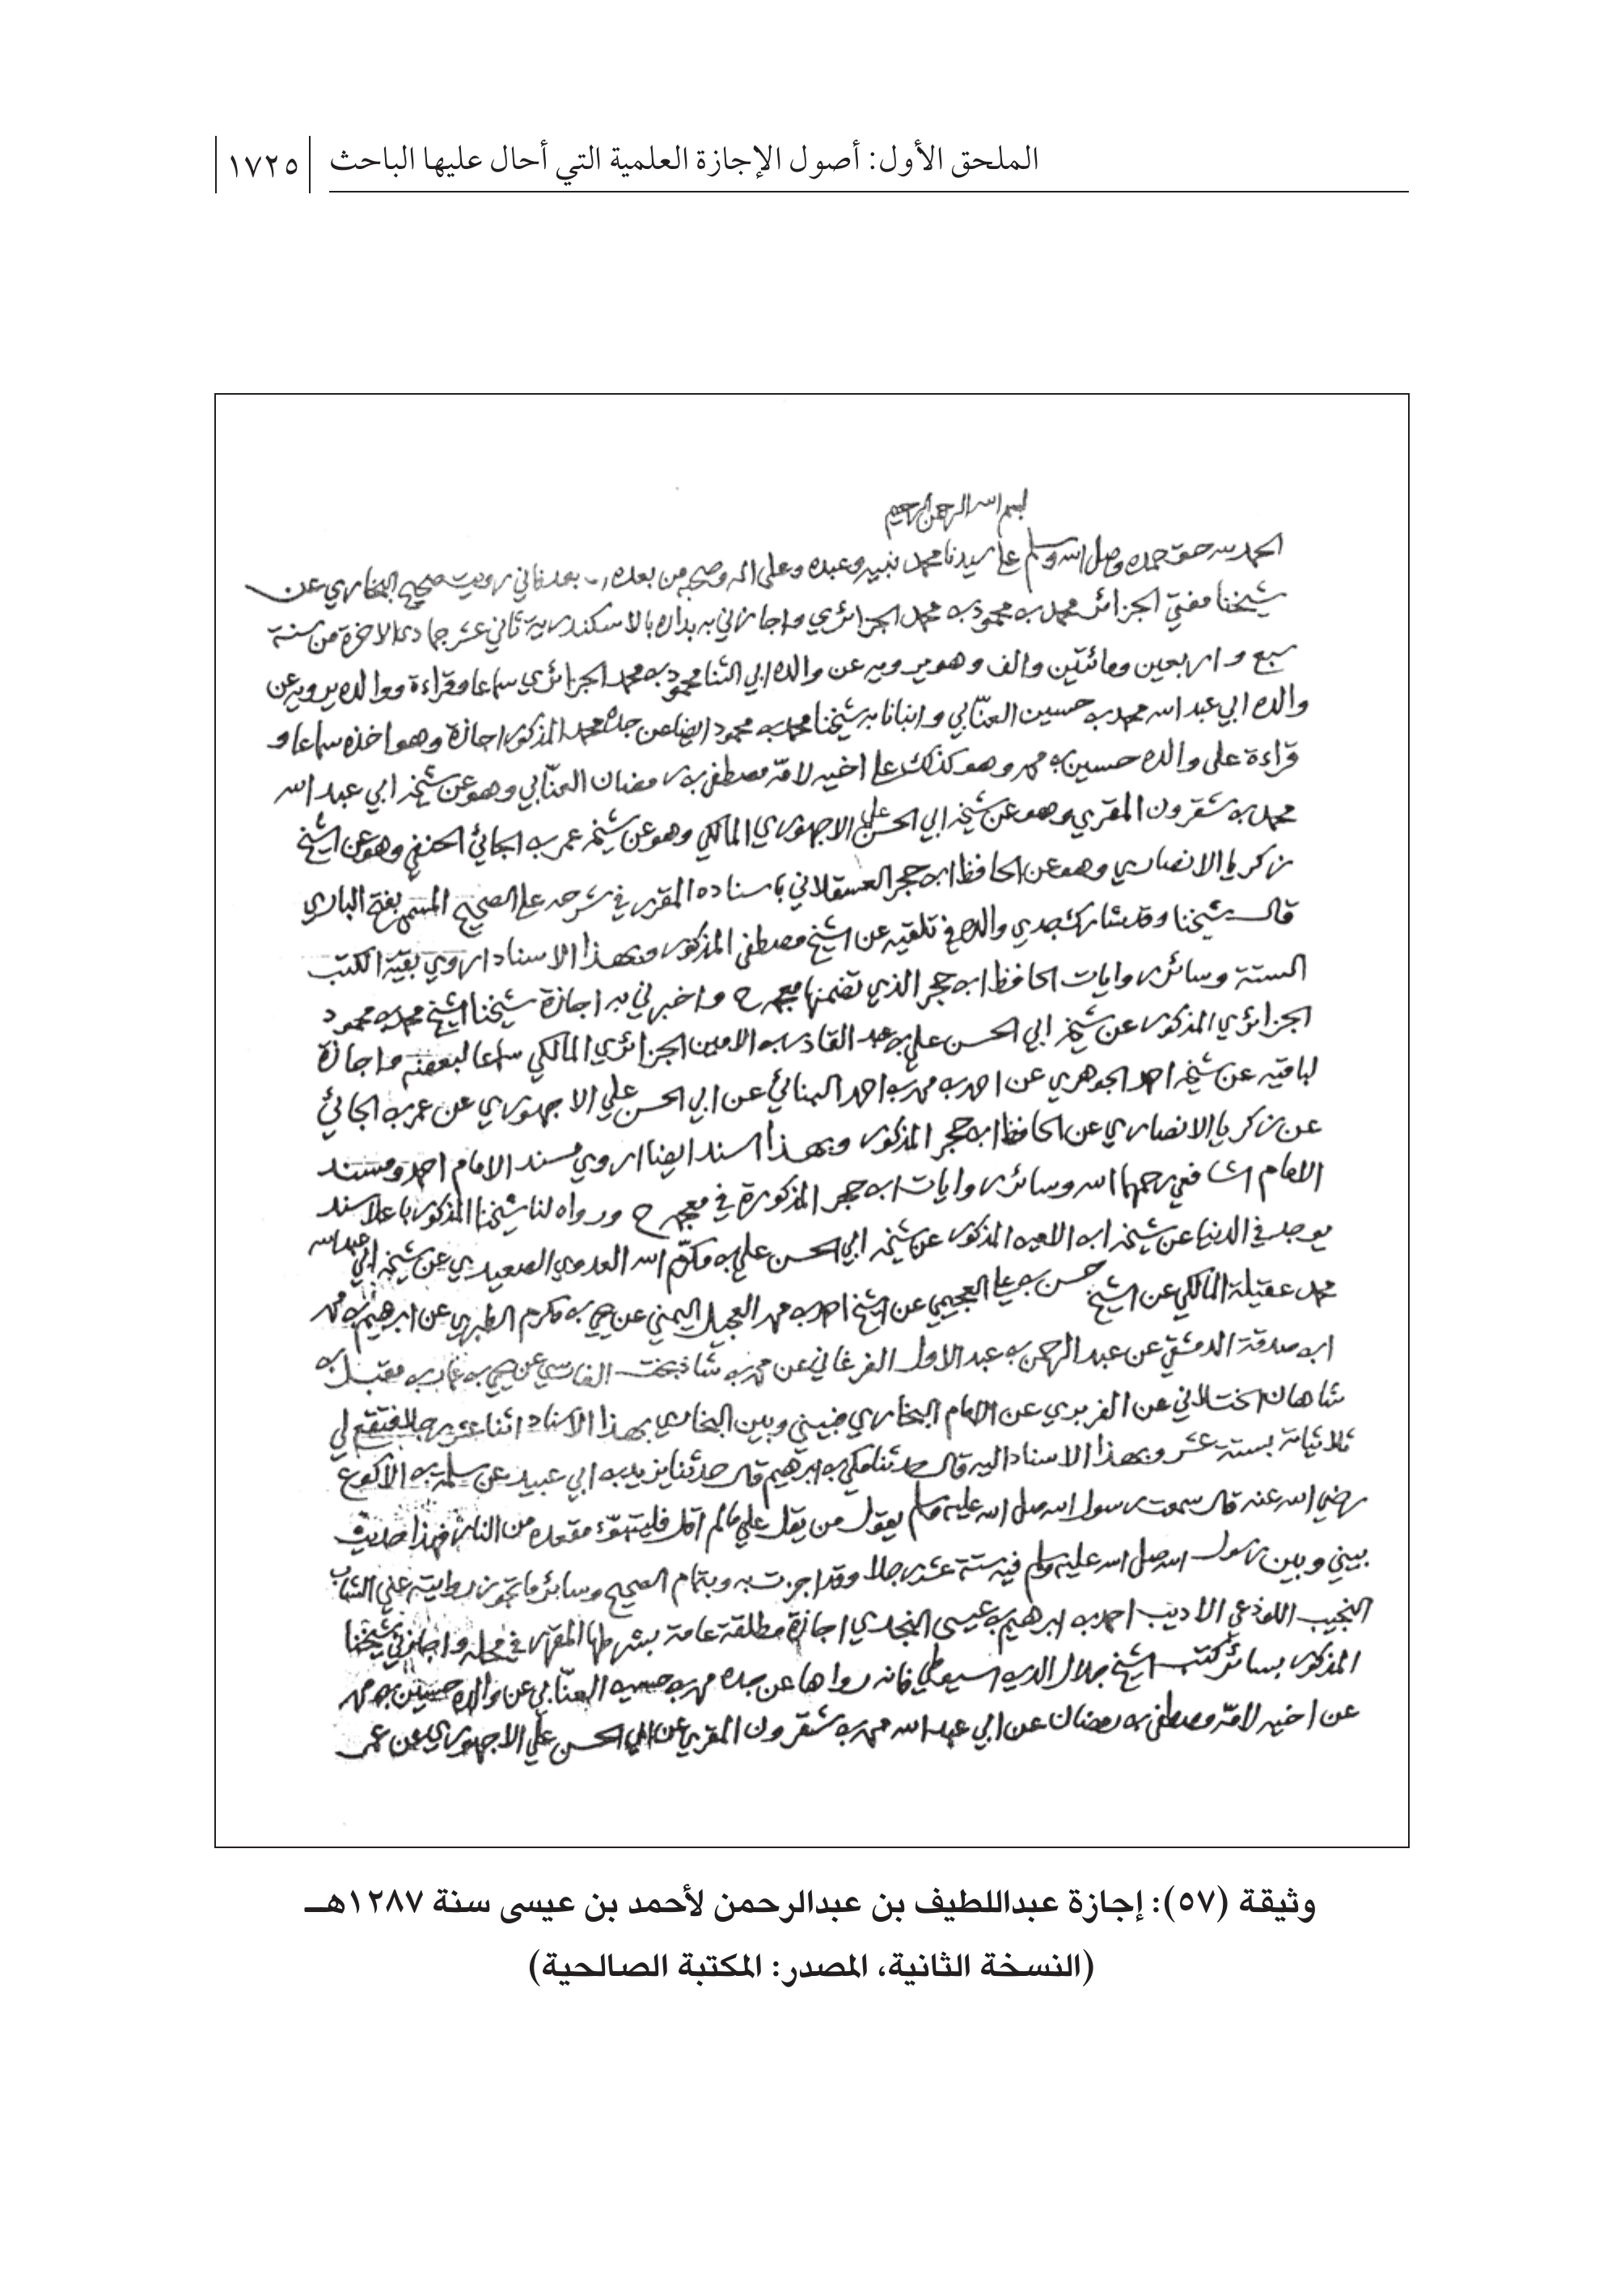 الملحق الأول: أصول الإجازة العلمية التي أحال عليها الباحث
١٧٢٥
بسم الله الرحمن الرحيم
الحمد لله حق حمده وصلى الله وسلم على سيدنا محمد نبيه وعبده وعلى اله وصحبه من بعده بعد فاني رويت صحيح البخاري عن
شيخنا مفتي الجزائر محمد بن محمود بن محمد الجزائري واجازني به بداره بالاسكندرية ثاني عشر جمادى الاخرة من سنة
سبع واربعين ومائتين والف وهو يرويه عن والده ابي الثنا محمود بن محمد الجزائري سماعا وقراءة ووالده يرويه عن
والده ابي عبد الله محمد بن حسين العنّابي وانبانا به شيخنا محمد بن محمود ايضا عن جده محمد المذكور اجازة وهو اخذه سماعا و
قراءة على والده حسين بن محمد وهو كذلك على اخيه لامّه مصطفى بن رمضان العنّابي وهو عن شيخه ابي عبد الله
محمد بن شقرون المقري وهو عن شيخه ابي الحسن علي الاجهوري المالكي وهو عن شيخه عمر بن الجائي الحنفي وهو عن الشيخ
زكريا الانصاري وهو عن الحافظ ابن حجر العسقلاني باسناده المقرر في شرحه على الصحيح المسمى بفتح الباري
قال شيخنا وقد شارك جدي والده في تلقيه عن الشيخ مصطفى المذكور وبهذا الاسناد اروي بقية الكتب
الستة وسائر روايات الحافظ ابن حجر الذي تضمنها معجمه ح واخبرني به اجازة شيخنا الشيخ محمد بن محمود
الجزائري المذكور عن شيخه ابي الحسن علي بن عبد القادر بن الامين الجزائري المالكي سماعا لبعضه واجازة
لباقيه عن شيخه احمد الجوهري عن احمد بن محمد بن احمد البنائي عن ابي الحسن علي الاجهوري عن عمر بن الجائي
عن زكريا الانصاري عن الحافظ ابن حجر المذكور وبهذا السند ايضا اروي مسند الامام احمد ومسند
الامام الشافعي رحمهما الله وسائر روايات ابن حجر المذكورة في معجمه ح ورواه لنا شيخنا المذكور باعلا سند
يوجد في الدنيا عن شيخه ابن الامين المذكور عن شيخه ابي الحسن علي بن مكرّم الله العدوي الصعيدي عن شيخه ابي عبد الله
محمد عقيلة المالكي عن الشيخ حسن بن علي العجيمي عن الشيخ احمد بن محمد العجيل اليمني عن يحيى بن مكرم الطبري عن ابرهيم بن محمد
ابن صدقة الدمشقي عن عبد الرحمن بن عبد الاول الفرغاني عن محمد بن شاذبخت الفارسي عن يحيى بن عمار بن مقبل بن
شاهان الختلاني عن الفربري عن الامام البخاري فبيني وبين البخاري بهذا الاسناد اثنا عشر رجلا فتقع لي
ثلاثياته بستة عشر وبهذا الاسناد اليه قال حدثنا مكي بن ابرهيم قال حدثنا يزيد بن ابي عبيد عن سلمة بن الاكوع
رضي الله عنه قال سمعت رسول الله صلى الله عليه وسلم يقول من يقل علي مالم اقل فليتبوّء مقعده من النار فهذا حديث
بيني وبين رسول الله صلى الله عليه وسلم فيه ستة عشر رجلا وقد اجزت به وبتمام الصحيح وسائر ما تجوز روايته علي الشاب
النجيب اللوذعي الاديب احمد بن ابرهيم بن عيسى النجدي اجازة مطلقة عامة بشرطها المقرر في محله واجازني شيخنا
المذكور بسائر كتب الشيخ جلال الدين السيوطي فانه رواها عن جده محمد بن حسين العنّابي عن والده حسين بن محمد
عن اخيه لامّه مصطفى بن رمضان عن ابي عبد الله محمد بن شقرون المقري عن ابي الحسن علي الاجهوري عن عمر
وثيقة (٥٧): إجازة عبداللطيف بن عبدالرحمن لأحمد بن عيسى سنة ١٢٨٧هـ
(النسخة الثانية، المصدر: المكتبة الصالحية)